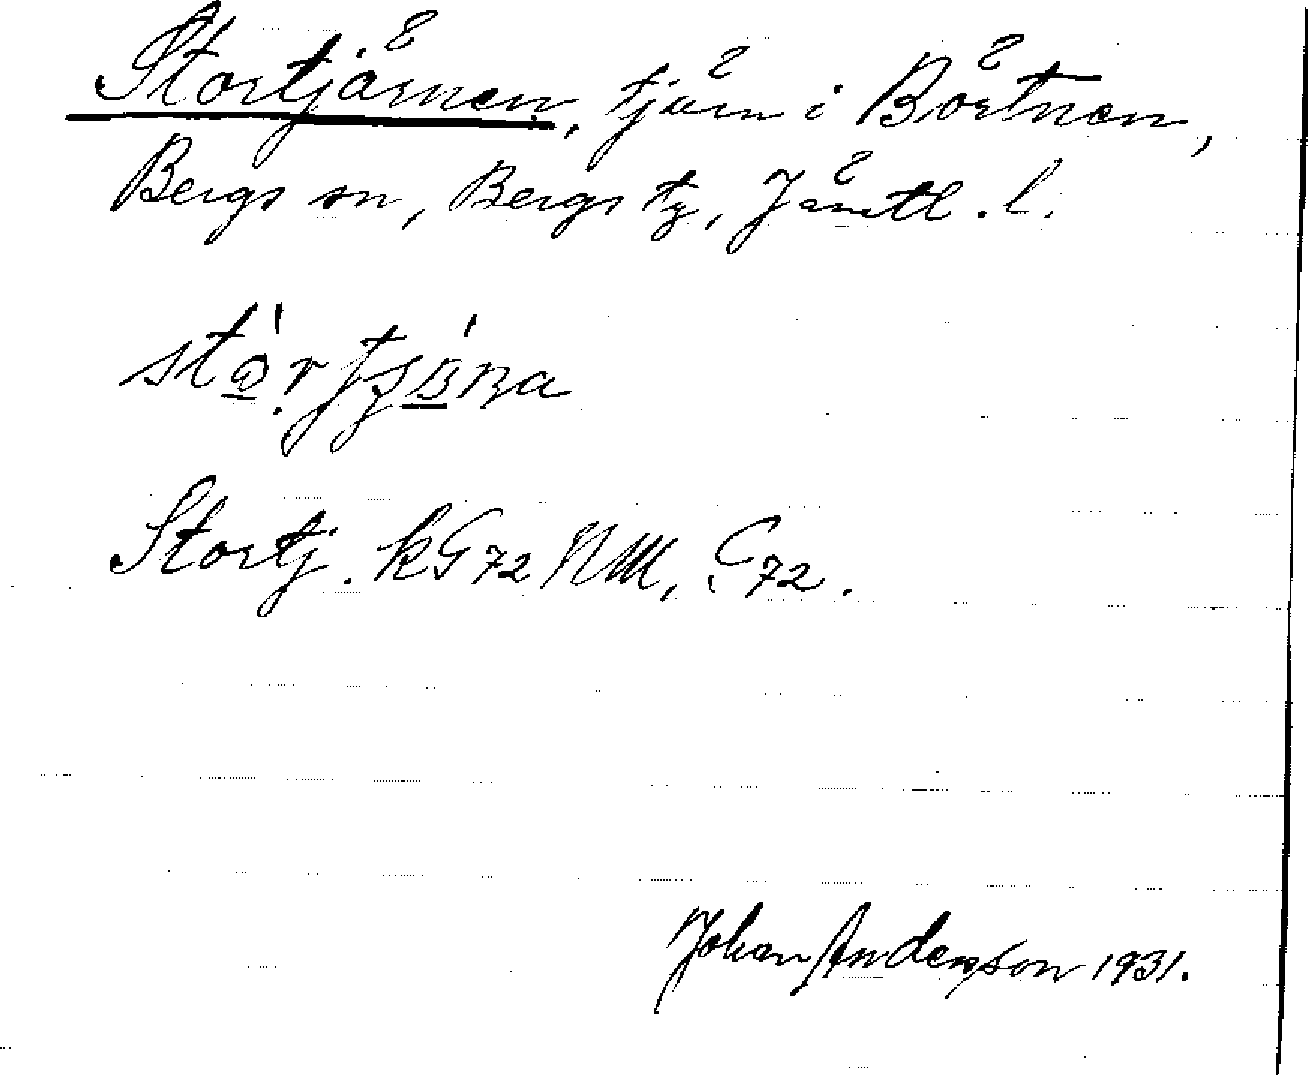 Stortjärnen, tjärn i Börtnen,
Bergs sn, Bergs tg, Jämtl. l.
Stortj. kG72 NM, C72.
Johan Anderson 1931.